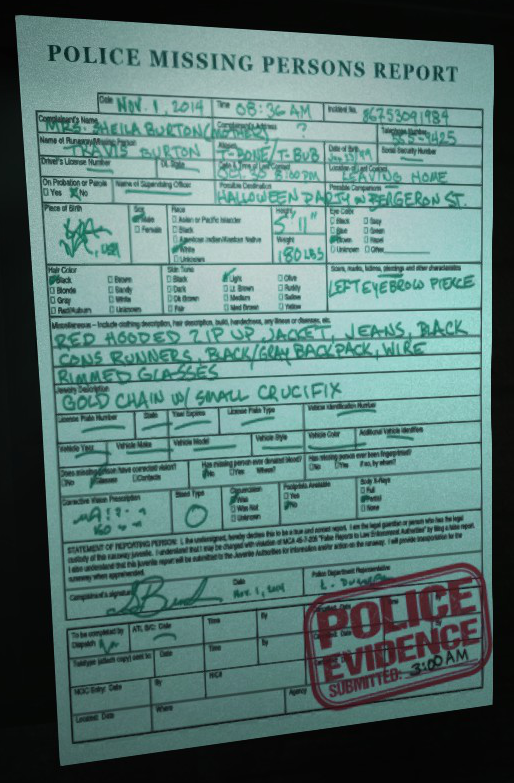 POLICE MISSING PERSONS REPORT
Date NOV. 1, 2014 Time 08:36 AM Incident No. 86753091984
Complainant's Name MRS. SHEILA BURTON (MOTHER) Complainant's Address ? Telephone Number
Name of Runaway/Missing Person TRAVIS BURTON Aliases T-BONE/T-BUB Date of Birth Social Security Number
Driver's License Number DL State 8:00PM Location of Last Contact LEAVING HOME
On Probation or Parole Yes No Name of Supervising Officer Possible Destination HALLOWEEN PARTY ON BERGERON ST. Possible Companions
Place of Birth Sex Race Height 5'11" Eye Color
Male Asian or Pacific Islander Black Gray
Female Black Blue Green
White Weight 180 LBS Brown Hazel
Unknown Unknown Other
Hair Color Skin Tone Scars, marks, tattoos, piercings and other characteristics
Black Brown Black Light Olive LEFT EYEBROW PIERCE
Blonde Sandy Dark Lt. Brown Ruddy
Gray White Dk Brown Medium Sallow
Red/Auburn Unknown Fair Med Brown Yellow
Miscellaneous – include clothing description, hair description, build, handedness, any illness or diseases, etc.
RED HOODED ZIP UP JACKET, JEANS, BLACK
CONS RUNNERS, BLACK/GRAY BACKPACK, WIRE
RIMMED GLASSES
Jewelry Description
GOLD CHAIN W/ SMALL CRUCIFIX
License Plate Number State Year Expires License Plate Type Vehicle Identification Number
Vehicle Year Vehicle Make Vehicle Model Vehicle Style Vehicle Color Additional Vehicle Identifiers
Does missing person have corrected vision? Has missing person ever donated blood? Has missing person ever been fingerprinted?
No Glasses Contacts No Yes Where? No Yes If so, by whom?
Corrective Vision Prescription Blood Type O Circumcision Footprints Available Body X-Rays
Was Yes Full
Was Not No Partial
Unknown None
STATEMENT OF REPORTING PERSON: I, the undersigned, hereby declare this to be a true and correct report. I am the legal guardian or person who has the legal
custody of this runaway juvenile. I understand that I may be charged with violation of MCA 45-7-205 "False Reports to Law Enforcement Authorities" by filing a false report.
I also understand that this juvenile report will be submitted to the Juvenile Authorities for information and/or action on the runaway. I will provide transportation for the
runaway when apprehended.
Complainant's signature Date Nov. 1, 2014 Police Department Representative
To be completed by Dispatch ATL B/C: Date Time By
Teletype (attach copy) sent to: Date Time By
NCIC Entry: Date By NIC#
Located: Date Where Agency
POLICE
EVIDENCE
SUBMITTED: 3:00 AM